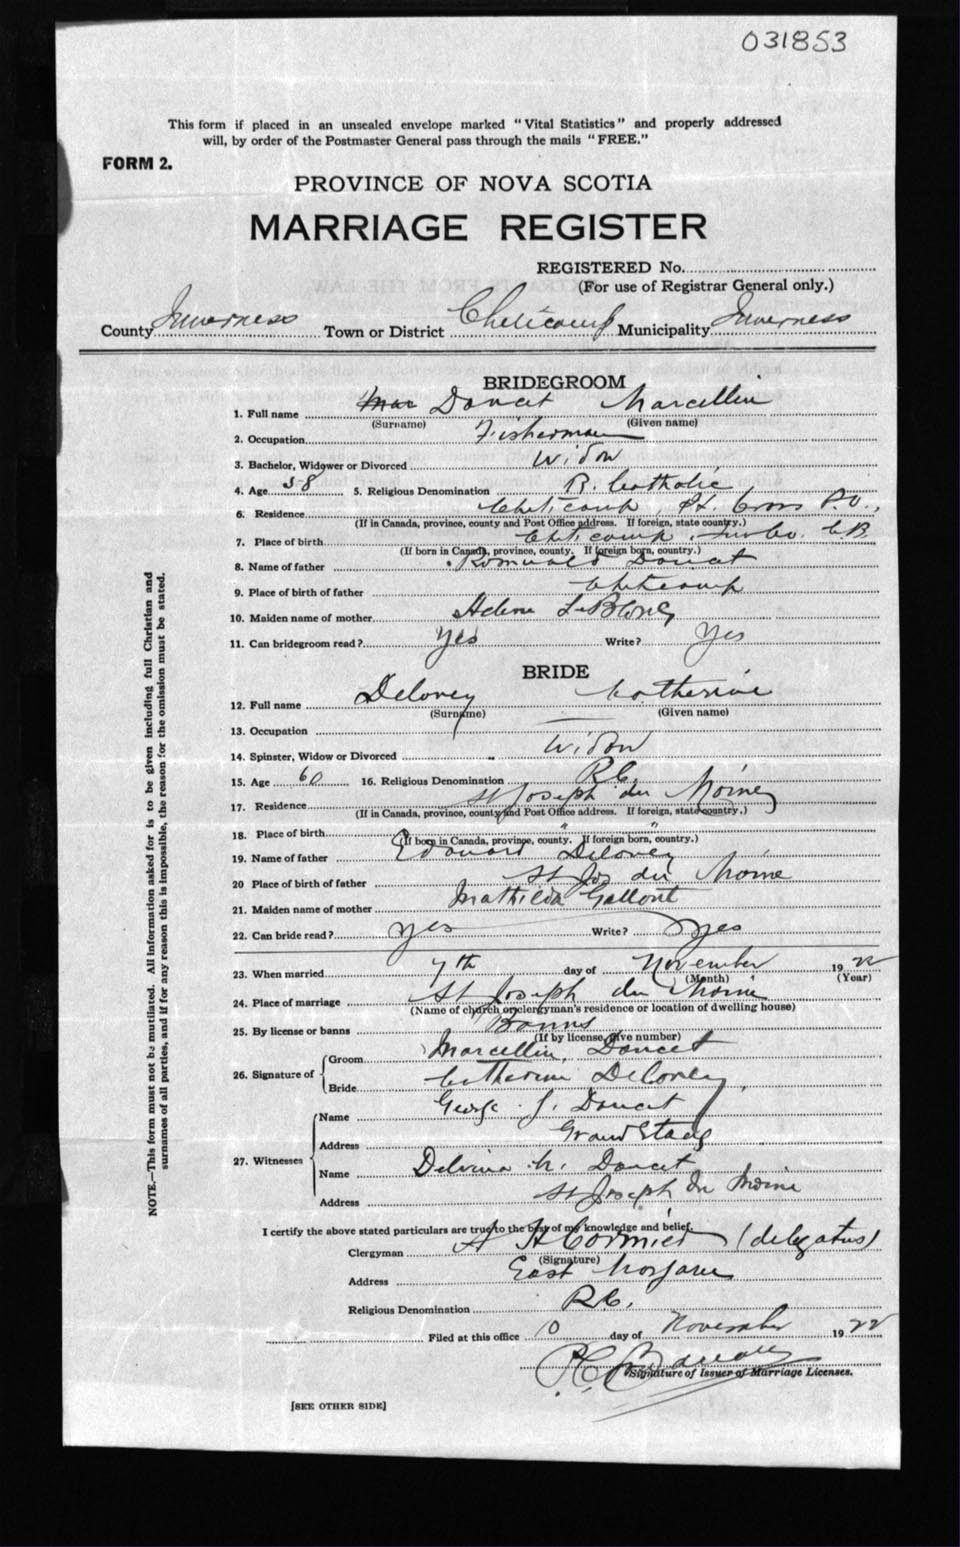 031853
This form if placed in an unsealed envelope marked "Vital Statistics" and properly addressed
will, by order of the Postmaster General pass through the mails "FREE."
FORM 2.
PROVINCE OF NOVA SCOTIA
MARRIAGE REGISTER
REGISTERED No.
(For use of Registrar General only.)
County Inverness Town or District Cheticamp Municipality Inverness
BRIDEGROOM
1. Full name Mar Doucet Marcellin
(Surname) (Given name)
2. Occupation Fisherman
3. Bachelor, Widower or Divorced Widow
4. Age 58 5. Religious Denomination R. Catholic
6. Residence Cheticamp, Pt. Cross P.O.,
(If in Canada, province, county and Post Office address. If foreign, state country.)
7. Place of birth Cheticamp Inv Co. C.B.
(If born in Canada, province, county. If foreign born, country.)
8. Name of father Romuald Doucet
9. Place of birth of father Cheticamp
10. Maiden name of mother Helene LeBlanc
11. Can bridegroom read? Yes Write? Yes
BRIDE
12. Full name Deloney Catherine
(Surname) (Given name)
13. Occupation —
14. Spinster, Widow or Divorced Widow
15. Age 60 16. Religious Denomination R.C.
17. Residence St Joseph du Moine
(If in Canada, province, county and Post Office address. If foreign, state country.)
18. Place of birth " "
(If born in Canada, province, county. If foreign born, country.)
19. Name of father Edouard Deloney
20 Place of birth of father St Jos du Moine
21. Maiden name of mother Mathilda Gallont
22. Can bride read? yes Write? yes
23. When married 7th day of November 1922
(Month) (Year)
24. Place of marriage St Joseph du Moine
(Name of church or clergyman's residence or location of dwelling house)
25. By license or banns Banns
(If by license, give number)
26. Signature of Groom Marcellin Doucet
Bride Catherine Deloney,
27. Witnesses Name George J. Doucet
Address Grand Etang
Name Delvina M. Doucet
Address St Joseph du Moine
I certify the above stated particulars are true to the best of my knowledge and belief.
Clergyman A H Cormier (delegatus)
(Signature)
Address East Margaree
Religious Denomination R.C.
Filed at this office 10 day of November 1922
P.C.
Signature of Issuer of Marriage Licenses.
[SEE OTHER SIDE]
NOTE.—This form must not be mutilated. All information asked for is to be given including full Christian and
surnames of all parties, and if for any reason this is impossible, the reason for the omission must be stated.